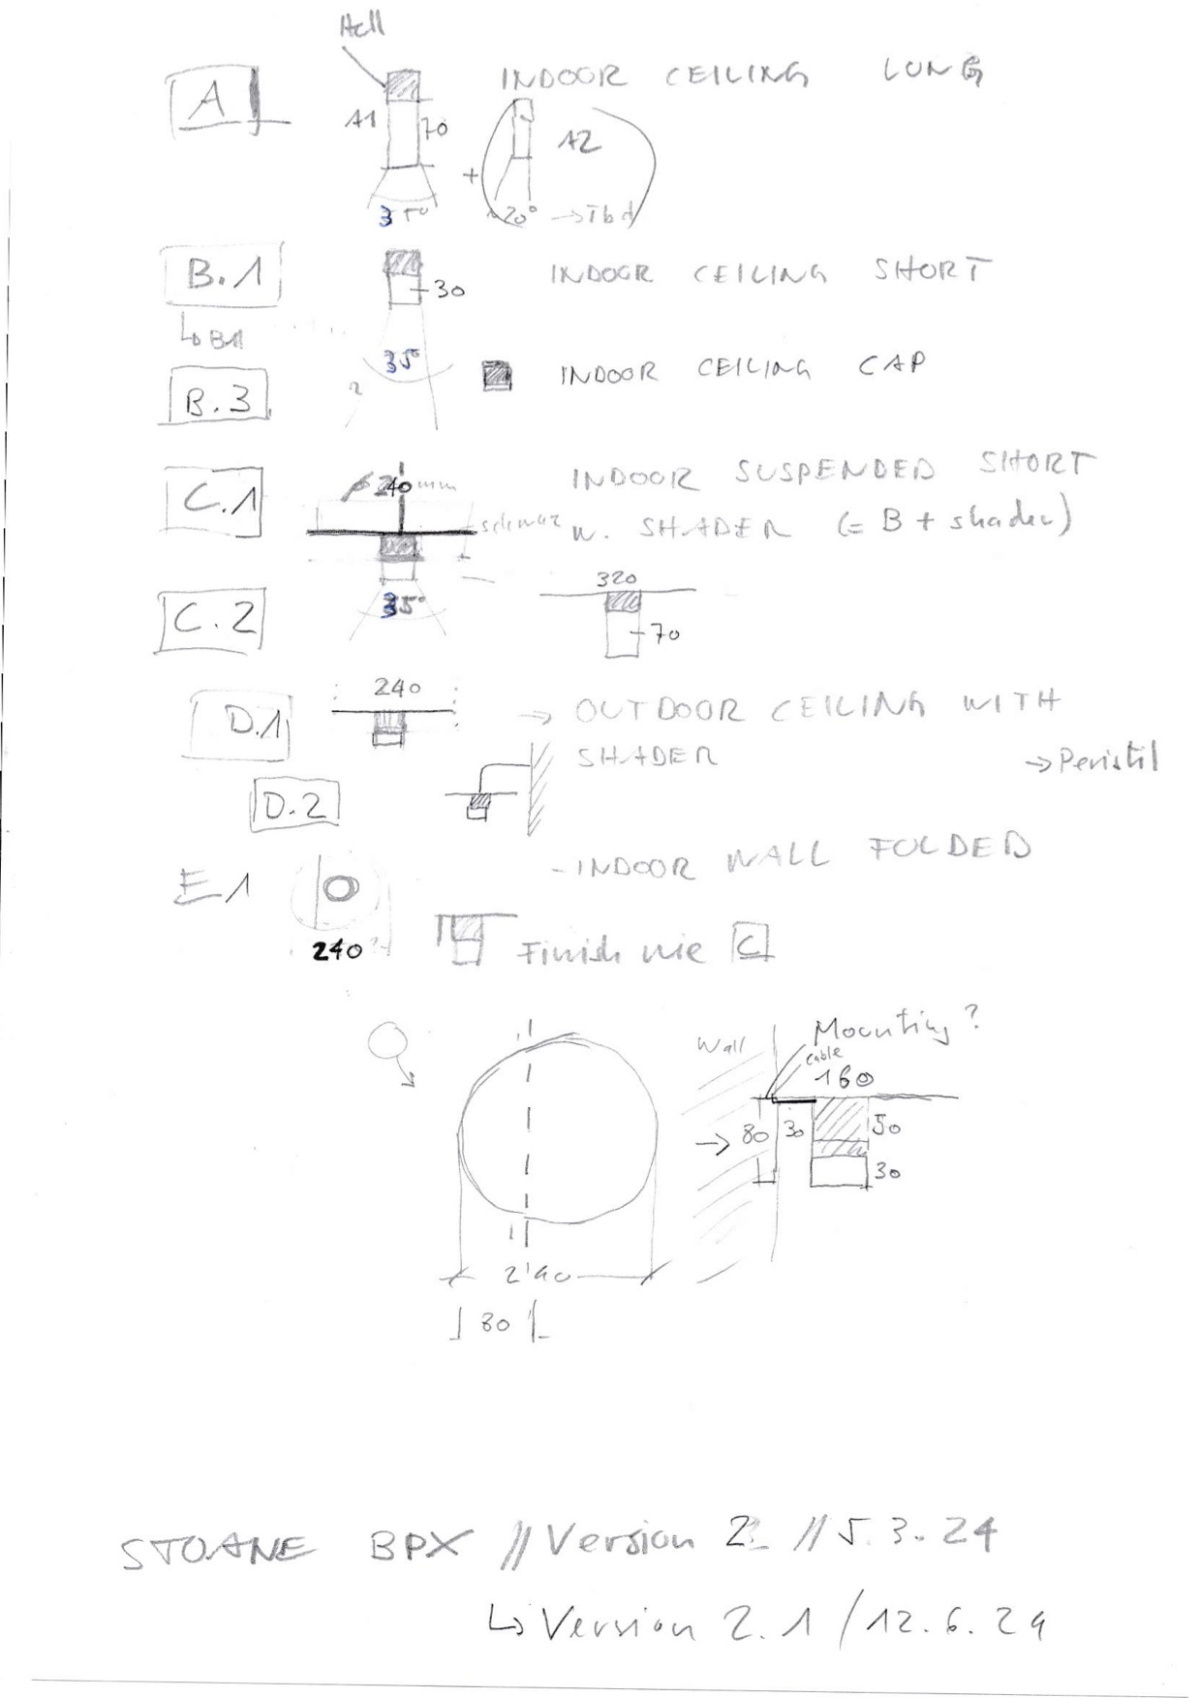 Hell
A
INDOOR CEILING LONG
A1
70
+
A2
35°
~20° → Tbd
B.1
30
INDOOR CEILING SHORT
35°
INDOOR CEILING CAP
B.3
C.1
ø 240 mm
schwarz
INDOOR SUSPENDED SHORT
W. SHADER (= B + shader)
C.2
35°
320
70
D.1
240
→ OUTDOOR CEILING WITH
SHADER
→ Peristil
D.2
E1
- INDOOR WALL FOLDED
240
Finish wie C
Wall
Mounting?
cable
160
→ 80
30
50
30
240
80
STOANE BPX // Version 2 // 5.3.24
↳ Version 2.1 / 12.6.24